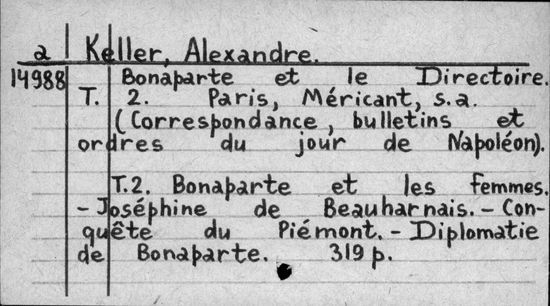 a Keller, Alexandre.
14988 Bonaparte et le Directoire.
T. 2. Paris, Méricant, s.a.
(Correspondance, bulletins et
ordres du jour de Napoléon).
T.2. Bonaparte et les femmes.
- Joséphine de Beauharnais. - Con-
quête du Piémont. - Diplomatie
de Bonaparte. 319 p.